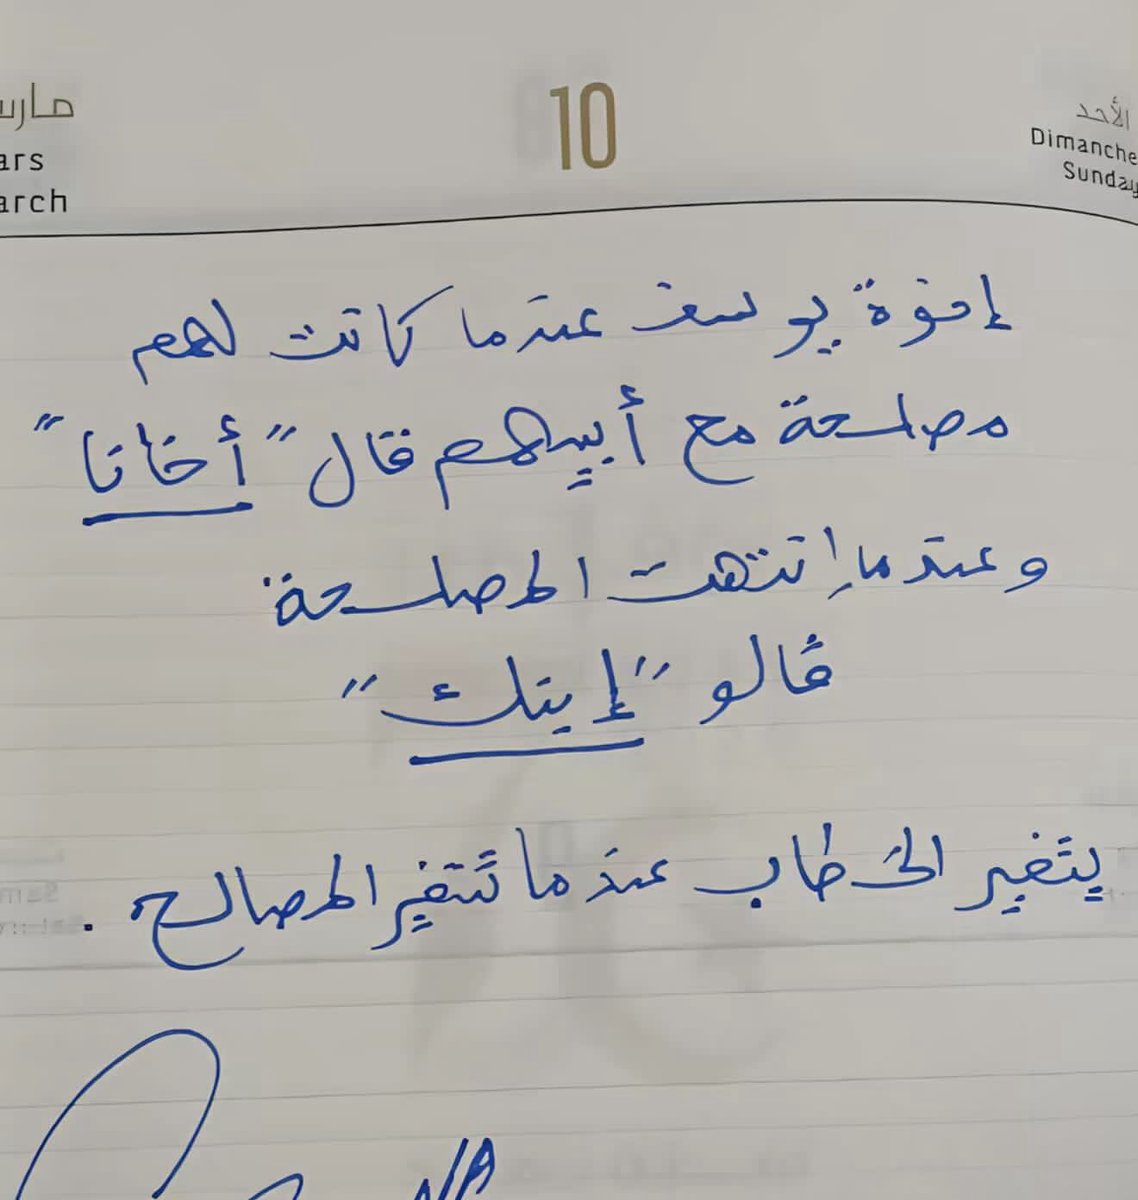 مارس
10
الأحد
ars
Dimanche
arch
Sunday
إخوة يوسف عندما كانت لهم
مصلحة مع أبيهم قال "أخانا"
وعندما إنتهت المصلحة
قالو "إبنك"
يتغير الخطاب عندما تتغير المصالح.